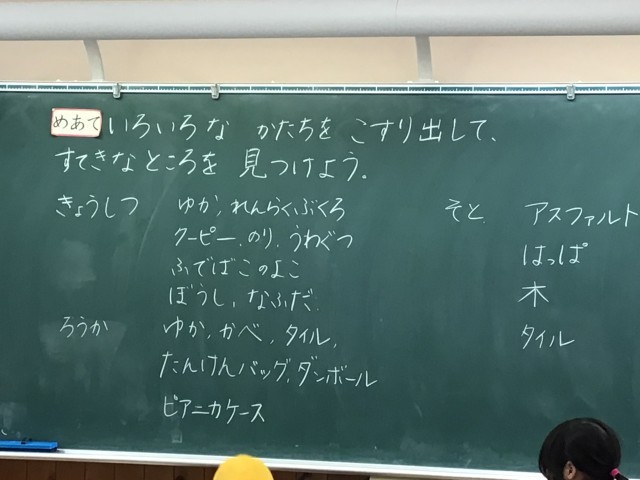 めあて いろいろな かたちを こすり出して、
すてきなところを 見つけよう。
きょうしつ ゆか、れんらくぶくろ
クーピー、のり、うわぐつ
ふでばこのよこ
ぼうし、なふだ
ろうか ゆか、かべ、タイル、
たんけんバッグ、ダンボール
ピアニカケース
そと アスファルト
はっぱ
木
タイル